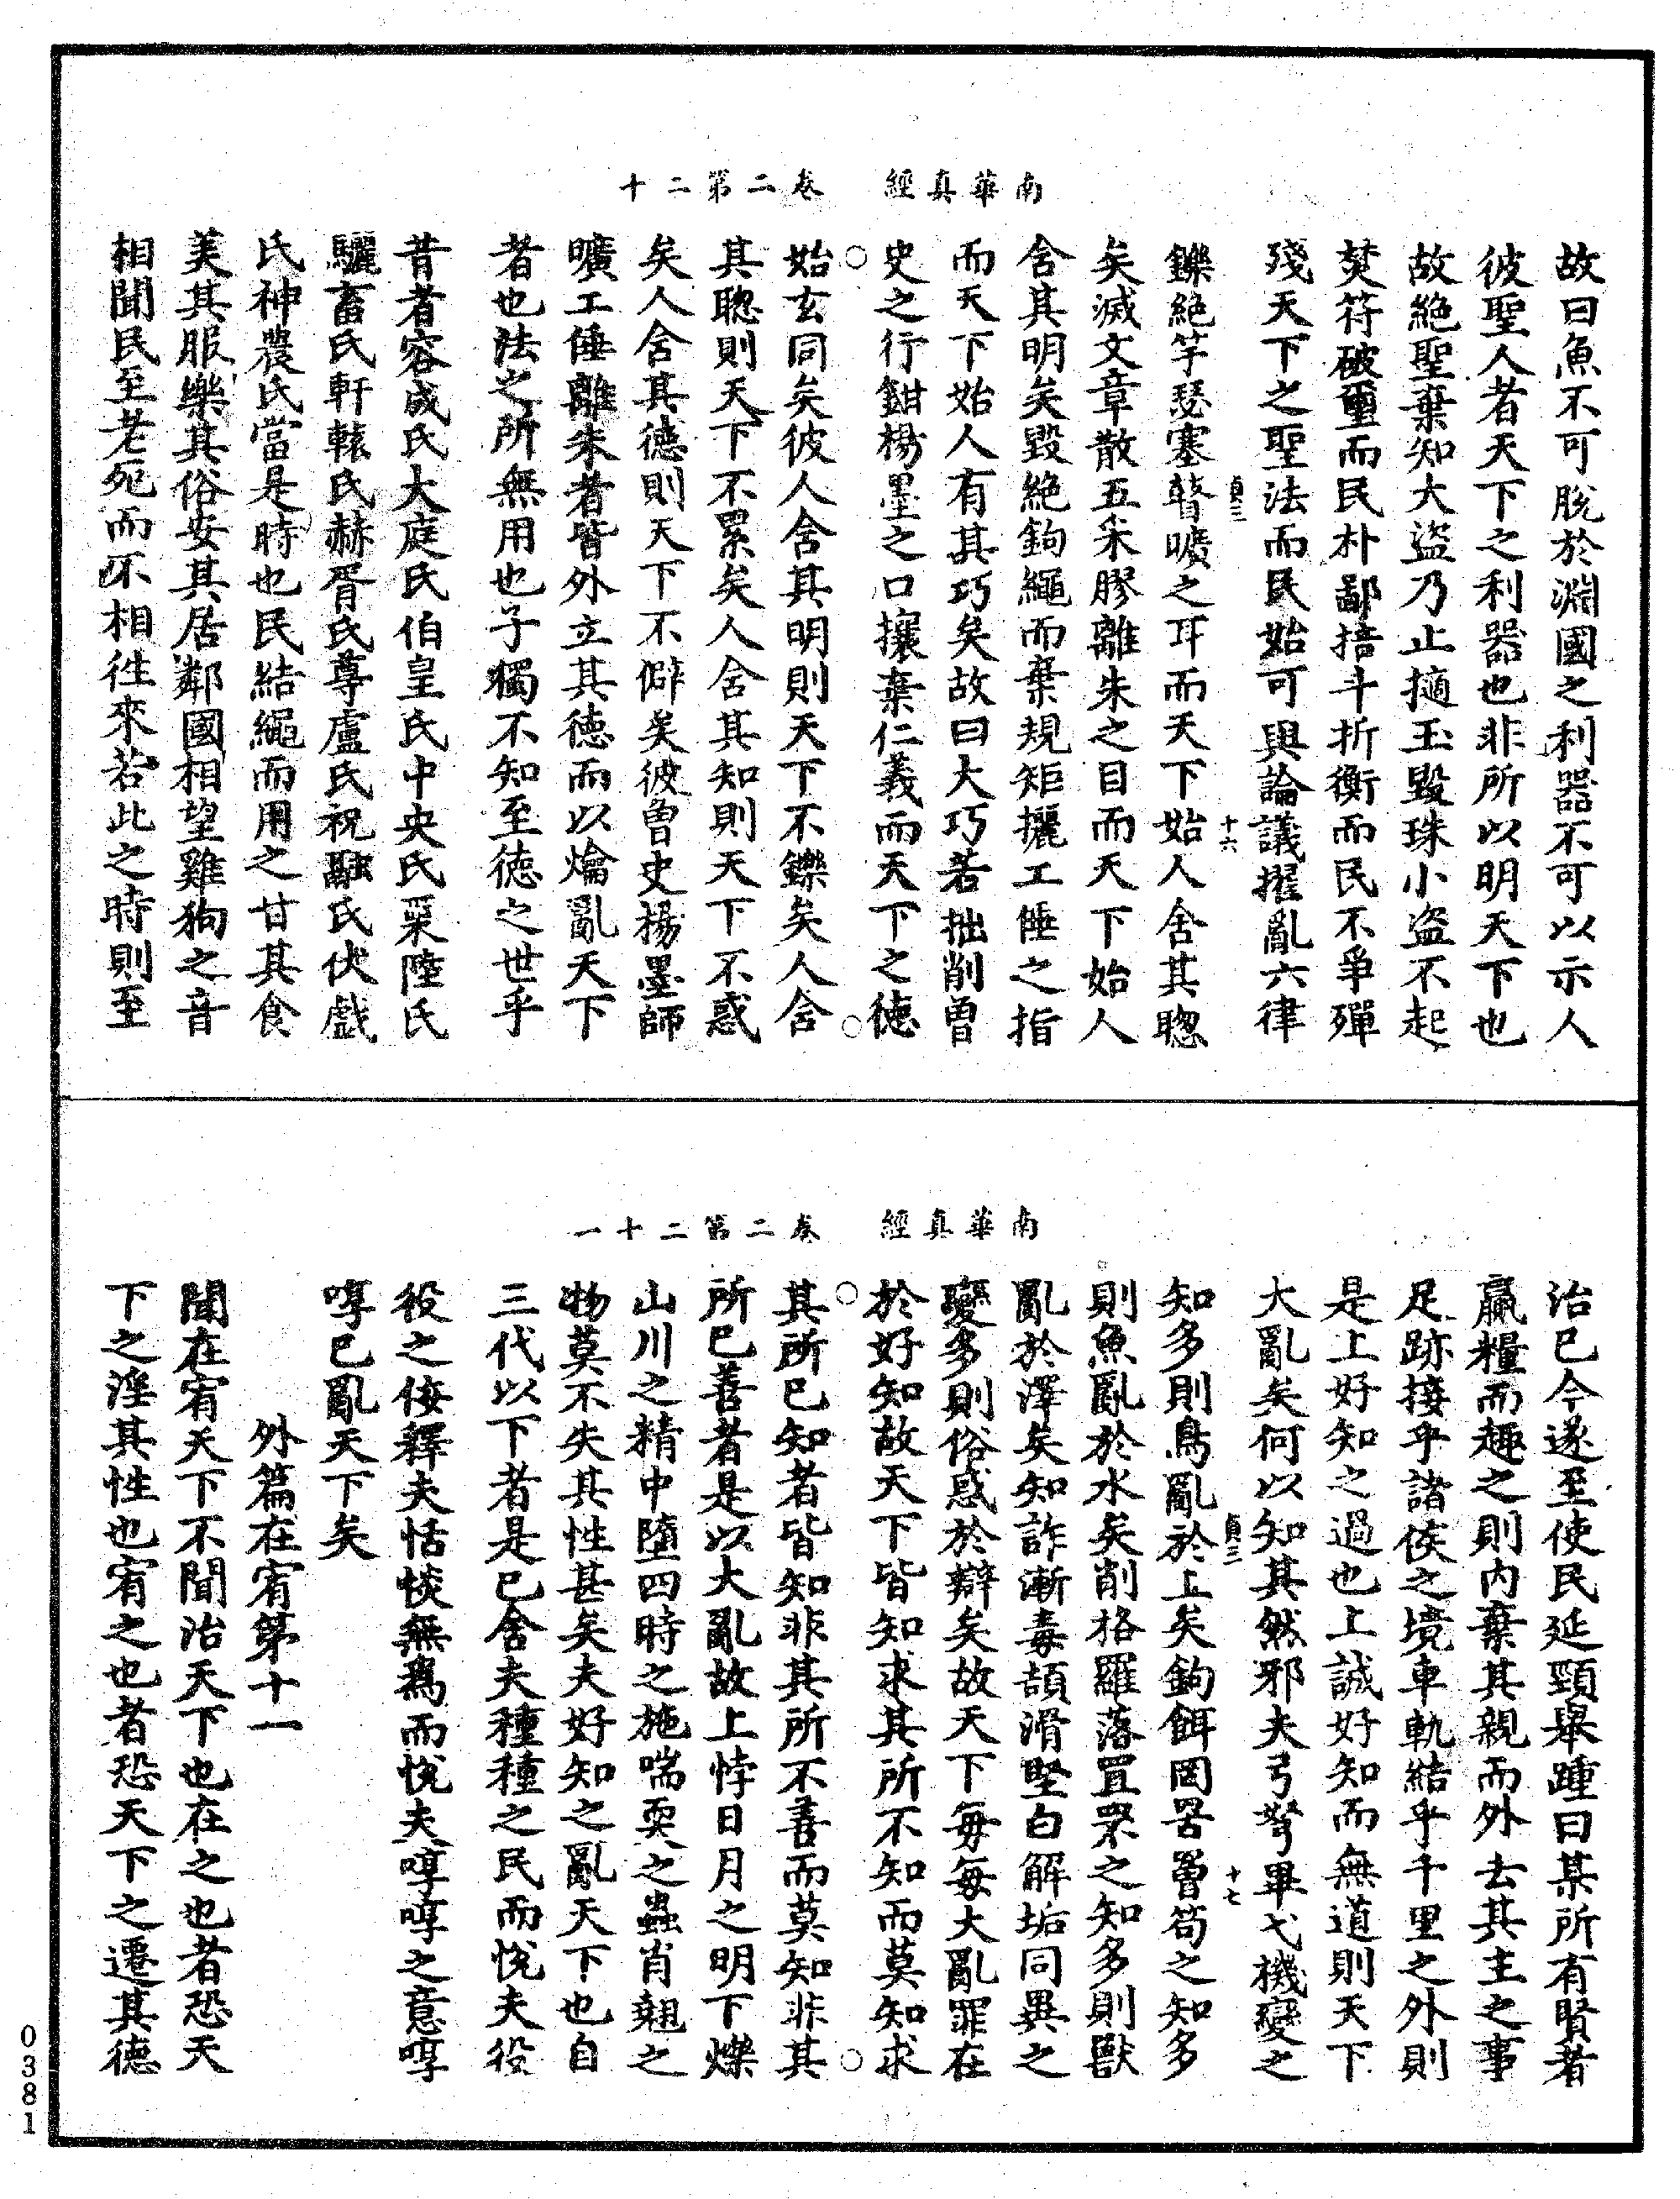 南華真經　卷二第二十
故曰魚不可脫於淵國之利器不可以示人
彼聖人者天下之利器也非所以明天下也
故絕聖棄知大盜乃止擿玉毀珠小盜不起
焚符破璽而民朴鄙掊斗折衡而民不爭殫
殘天下之聖法而民始可與論議擢亂六律
貞三　十六
鑠絕竽瑟塞瞽曠之耳而天下始人舍其聰
矣滅文章散五采膠離朱之目而天下始人
舍其明矣毀絕鉤繩而棄規矩攦工倕之指
而天下始人有其巧矣故曰大巧若拙削曾
史之行鉗楊墨之口攘棄仁義而天下之德
始玄同矣彼人舍其明則天下不鑠矣人舍
其聰則天下不累矣人舍其知則天下不惑
矣人舍其德則天下不僻矣彼曾史楊墨師
曠工倕離朱者皆外立其德而以爚亂天下
者也法之所無用也子獨不知至德之世乎
昔者容成氏大庭氏伯皇氏中央氏栗陸氏
驪畜氏軒轅氏赫胥氏尊盧氏祝融氏伏戲
氏神農氏當是時也民結繩而用之甘其食
美其服樂其俗安其居鄰國相望雞狗之音
相聞民至老死而不相往來若此之時則至
南華真經　卷二第二十一
治已今遂至使民延頸舉踵曰某所有賢者
贏糧而趣之則內棄其親而外去其主之事
足跡接乎諸侯之境車軌結乎千里之外則
是上好知之過也上誠好知而無道則天下
大亂矣何以知其然邪夫弓弩畢弋機變之
貞三　十七
知多則鳥亂於上矣鉤餌罔罟罾笱之知多
則魚亂於水矣削格羅落罝罘之知多則獸
亂於澤矣知詐漸毒頡滑堅白解垢同異之
變多則俗惑於辯矣故天下每每大亂罪在
於好知故天下皆知求其所不知而莫知求
其所已知者皆知非其所不善而莫知非其
所已善者是以大亂故上悖日月之明下爍
山川之精中墮四時之施喘耎之蟲肖翹之
物莫不失其性甚矣夫好知之亂天下也自
三代以下者是已舍夫種種之民而悅夫役
役之佞釋夫恬惔無為而悅夫啍啍之意啍
啍已亂天下矣
外篇在宥第十一
聞在宥天下不聞治天下也在之也者恐天
下之淫其性也宥之也者恐天下之遷其德
0381